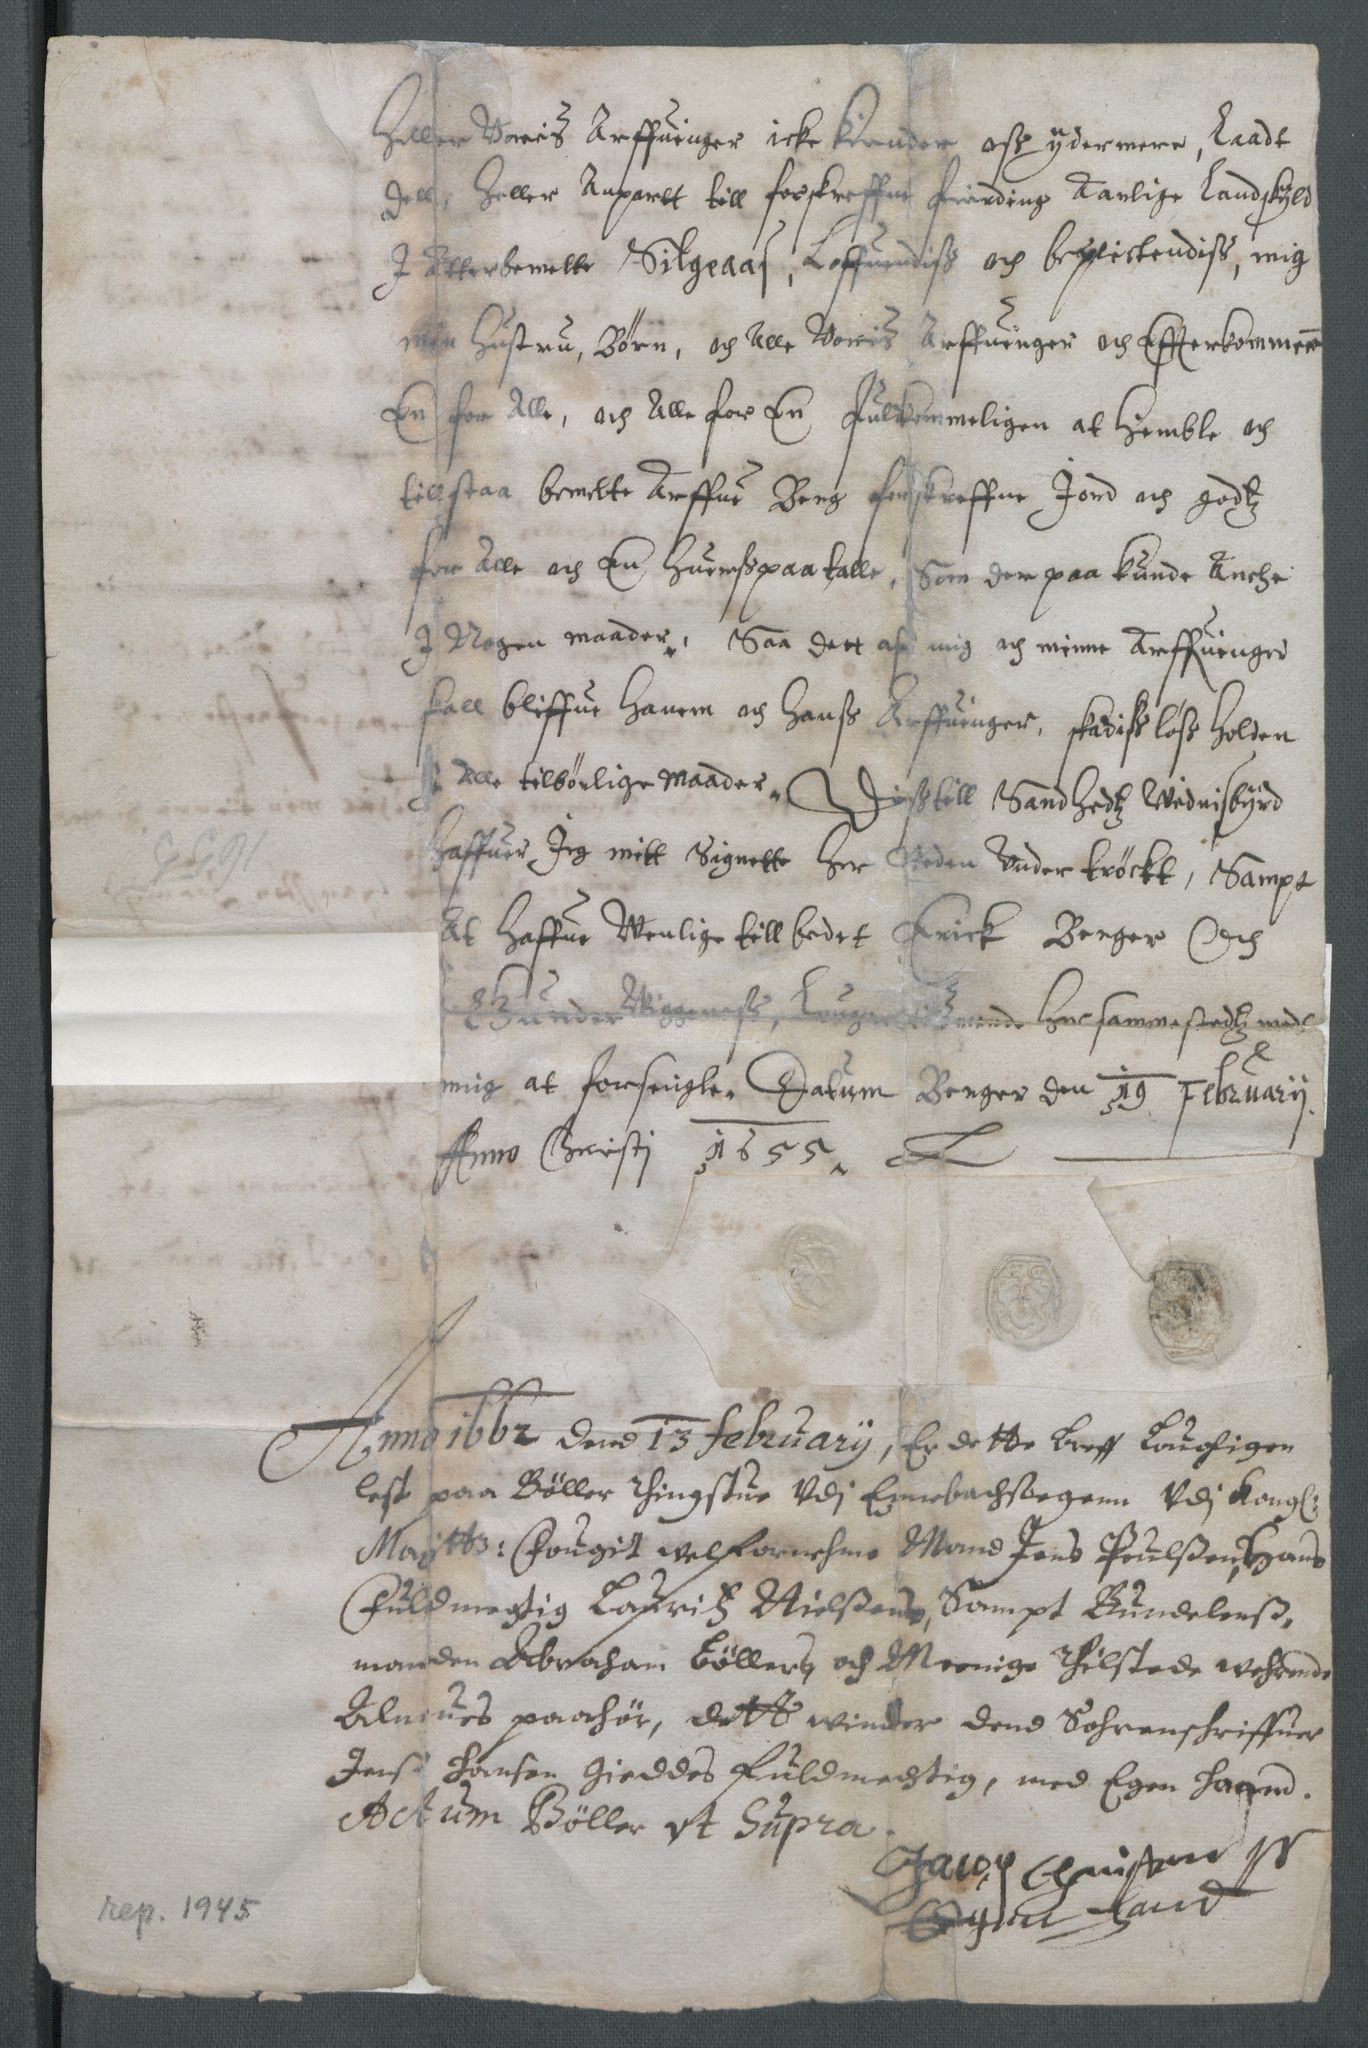 Heller Voris Arffuinger icke kiender oss ÿdermere, Laadt
dell, heller Anpartt till forskreffne fierding Aarlige Landskÿld
I Atterbemelte Silgeaas, Loffuendiss och beplictendiss, mig
min Hustru, Börn, och Alle Voris Arffuinger och Effterkommere
En for Alle, och Alle for En fulkommeligen at Hiemble och
tillstaa bemelte Arffue Berg forskreffne Jord och godtz
for Alle och En huerss paa talle, Som der paa kunde Anche
I Nogen maader, Saa dett aff mig och minne Arffuinger
skall bliffue hanem och hanss Arffuinger, skadisslöss holden
I Alle tilbörlige maader. Diss till Sandhedtz Widnisbÿrd
haffuer Jeg mitt Signette her Neden Vnder tröckt, Sampt
At haffue Wenlige till bedet Erick Berger Och
Gunder Wiggeness, Laugrettismende her sammestedtz med
mig at forseigle. Datum Berger den 19 Februarij.
Anno Christi 1655.
1655
Anno 1662 dend 13 februarij, Er dette breff Loufligen
lest paa Böller thingstue Vdj Ennebachssogenn Vdj Kongl:
Maÿtts: Fougit welfornehme Mand Jens Poulssen, Hans
Fuldmegtig Lauritz Nielssens, Sampt Bundelenss,
manden Abraham Böllers, och Meenige thilstede wehrende
Almues paahör, dette winder dend Sohrenschriffuer
Jenss Hansen Gieddes Fuldmechtig, med Egen Haand.
Actum Böller vt Supra.
Jacob Christensen
Egenn Haand
rep. 1945